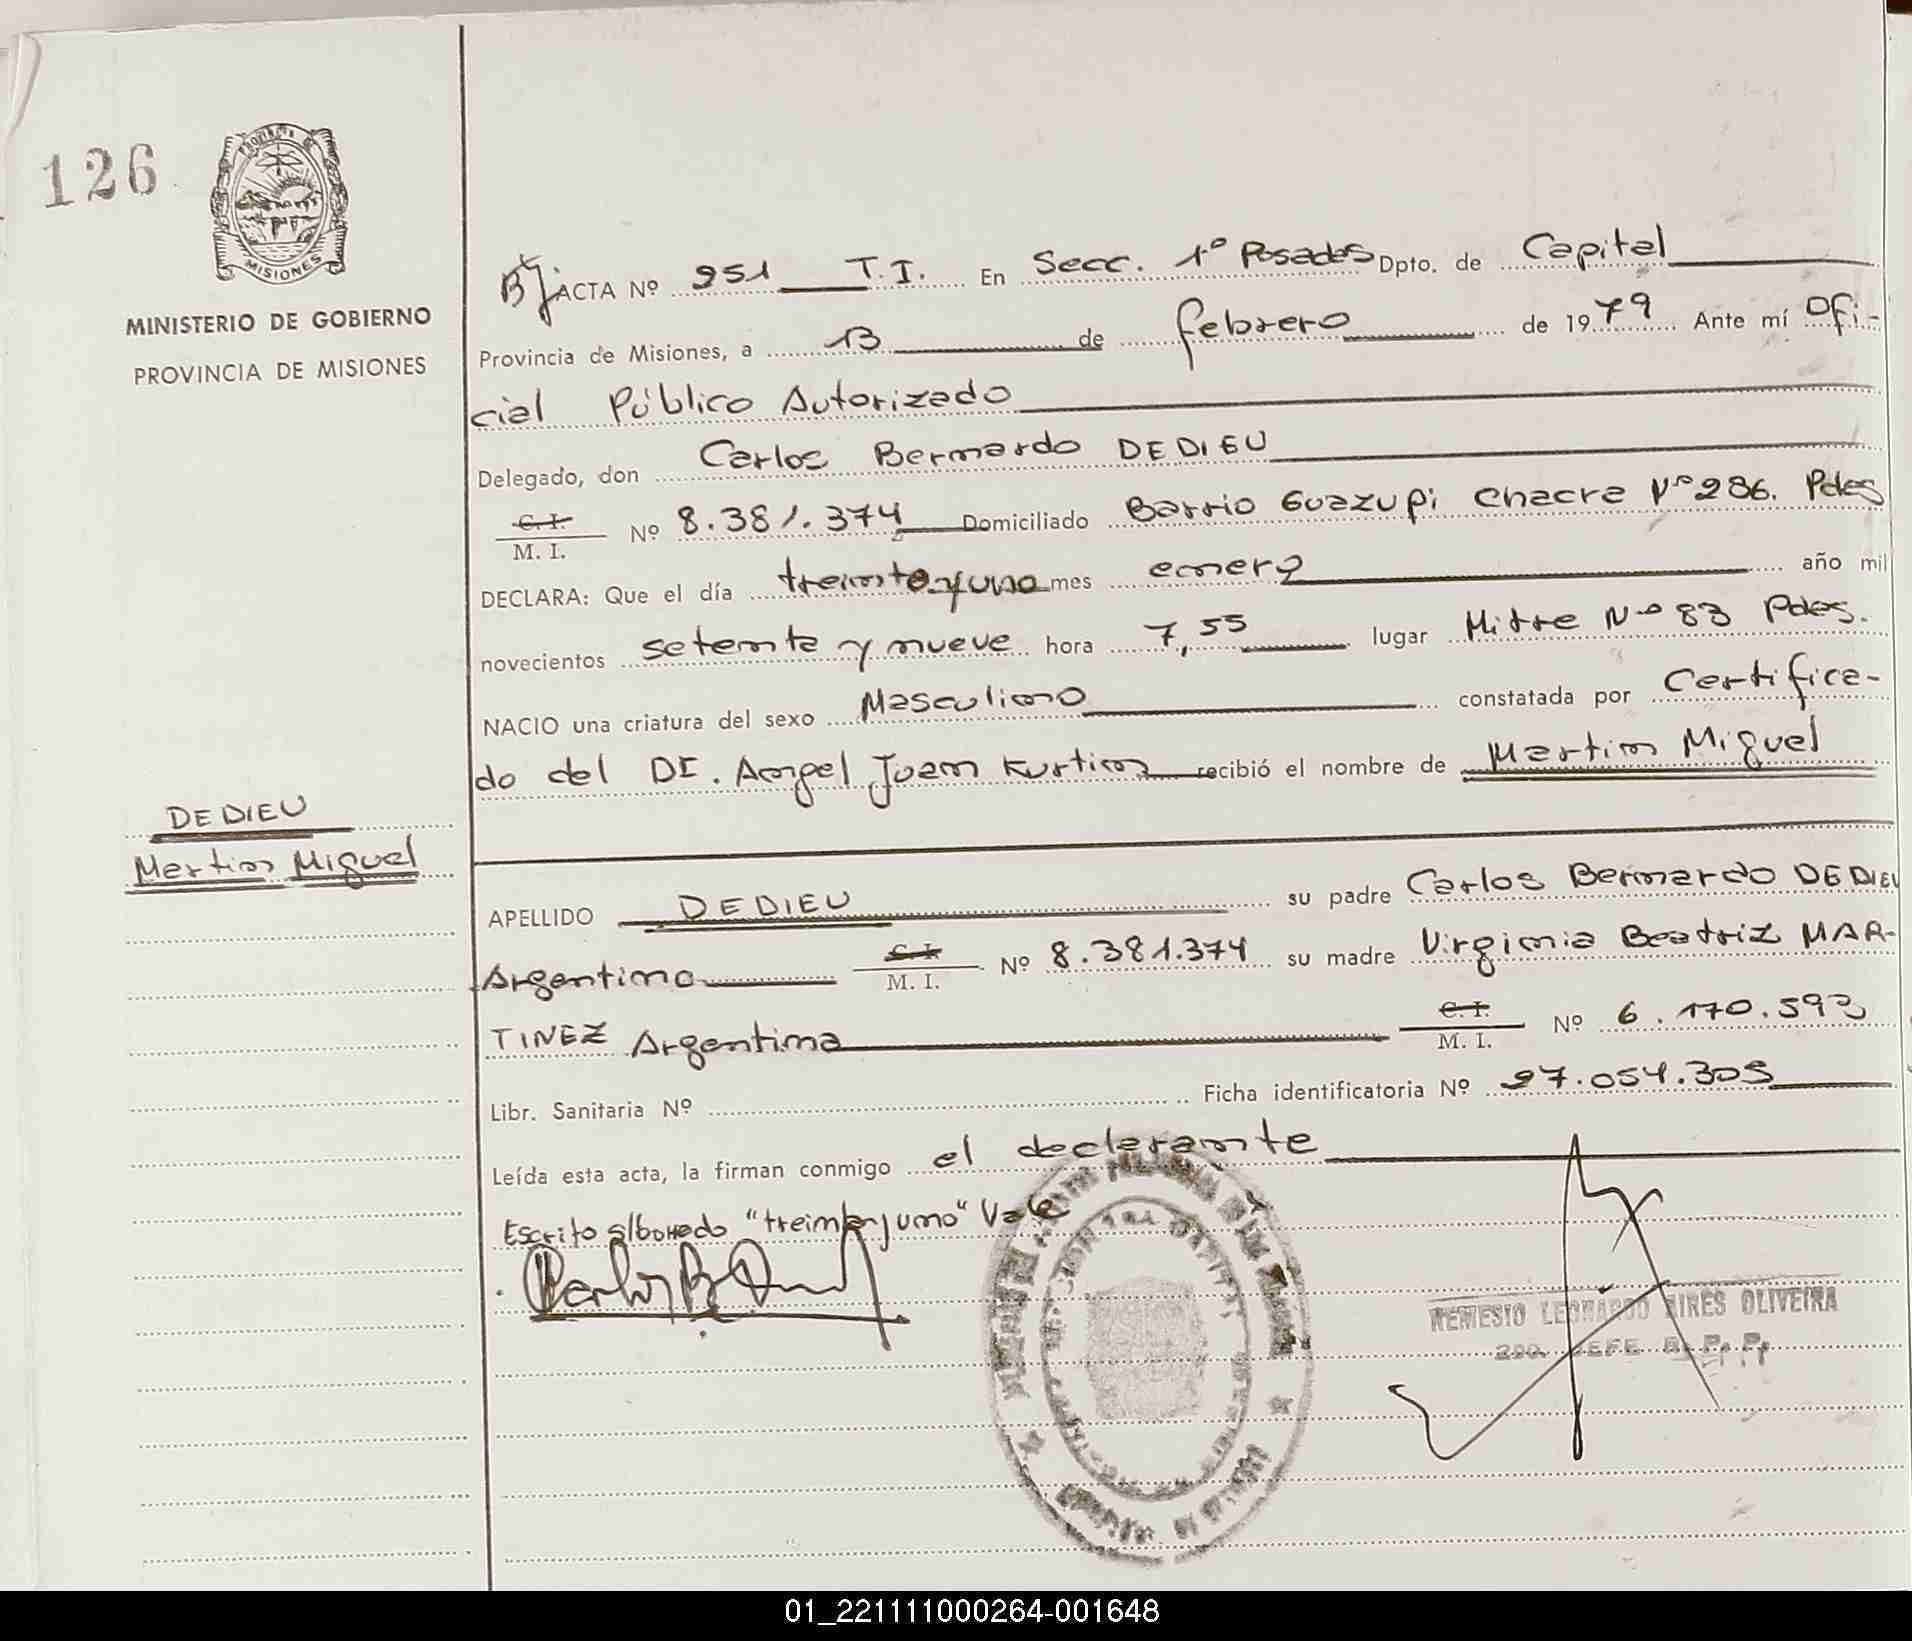 126
MISIONES
MINISTERIO DE GOBIERNO
PROVINCIA DE MISIONES
ACTA Nº 951 T.I. En Secc. 1º Posadas Dpto. de Capital
Provincia de Misiones, a 13 de febrero de 1979 Ante mí Ofi-
cial Público Autorizado
Delegado, don Carlos Bernardo DEDIEU
C.I. M. I. Nº 8.381.374 Domiciliado Barrio Guazupi Chacra Nº 286. Pdas
DECLARA: Que el día treintayuno mes enero año mil
novecientos setenta y nueve hora 7,55 lugar Mitre Nº 83 Pdas.
NACIO una criatura del sexo Masculino constatada por Certifica-
do del DR. Angel Juan Kurtin recibió el nombre de Martin Miguel
DEDIEU
Martin Miguel
APELLIDO DEDIEU su padre Carlos Bernardo DEDIEU
Argentino C.I. M. I. Nº 8.381.374 su madre Virginia Beatriz MAR-
TINEZ Argentina C.I. M. I. Nº 6.170.593
Libr. Sanitaria Nº Ficha identificatoria Nº 27.054.305
Leída esta acta, la firman conmigo el declarante
Escrito s/borrado "treintayuno" Vale
NEMESIO LEONARDO AIRES OLIVEIRA
JEFE
01_221111000264-001648